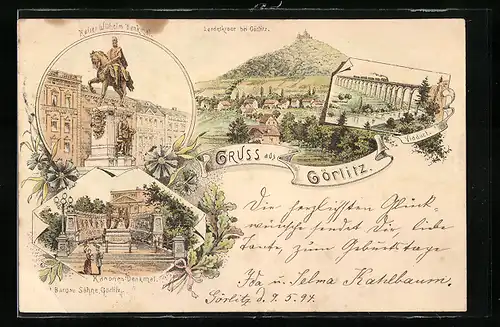 Kaiser Wilhelm Denkmal.
Landeskrone bei Görlitz.
Viaduct.
GRUSS aus
Görlitz.
Kanonen Denkmal.
Söhne, Görlitz.
Die herzlichsten Glück-
wünsche sendet Dir, liebe
Tante, zum Geburtstage
Ida u. Selma Kahlbaum.
Görlitz d. 9. 5. 94.